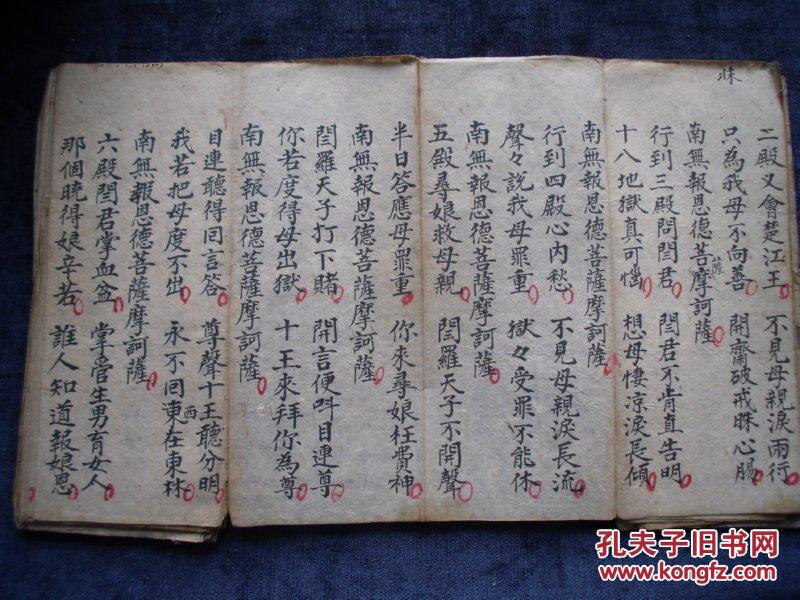 昧
二殿又會楚江王 不見母親淚兩行
只為我母不向善 開齋破戒昧心腸
南無報恩德菩薩摩訶薩
行到三殿問閻君 閻君不肯直告明
十八地獄真可惱 想母悽凉淚長傾
南無報恩德菩薩摩訶薩
行到四殿心内愁 不見母親淚長流
聲々說我母罪重 獄々受罪不能休
南無報恩德菩薩摩訶薩
五殿尋娘救母親 閻羅天子不開聲
半日答應母罪重 你來尋娘枉費神
南無報恩德菩薩摩訶薩
閻羅天子打下賭 開言便叫目連尊
你若度得母出獄 十王來拜你為尊
南無報恩德菩薩摩訶薩
目連聽得回言答 尊聲十王聽分明
我若把母度不出 永不回東西在東林
南無報恩德菩薩摩訶薩
六殿閻君掌血盆 掌管生男育女人
那個曉得娘辛苦 誰人知道報娘恩
孔夫子旧书网
www.kongfz.com